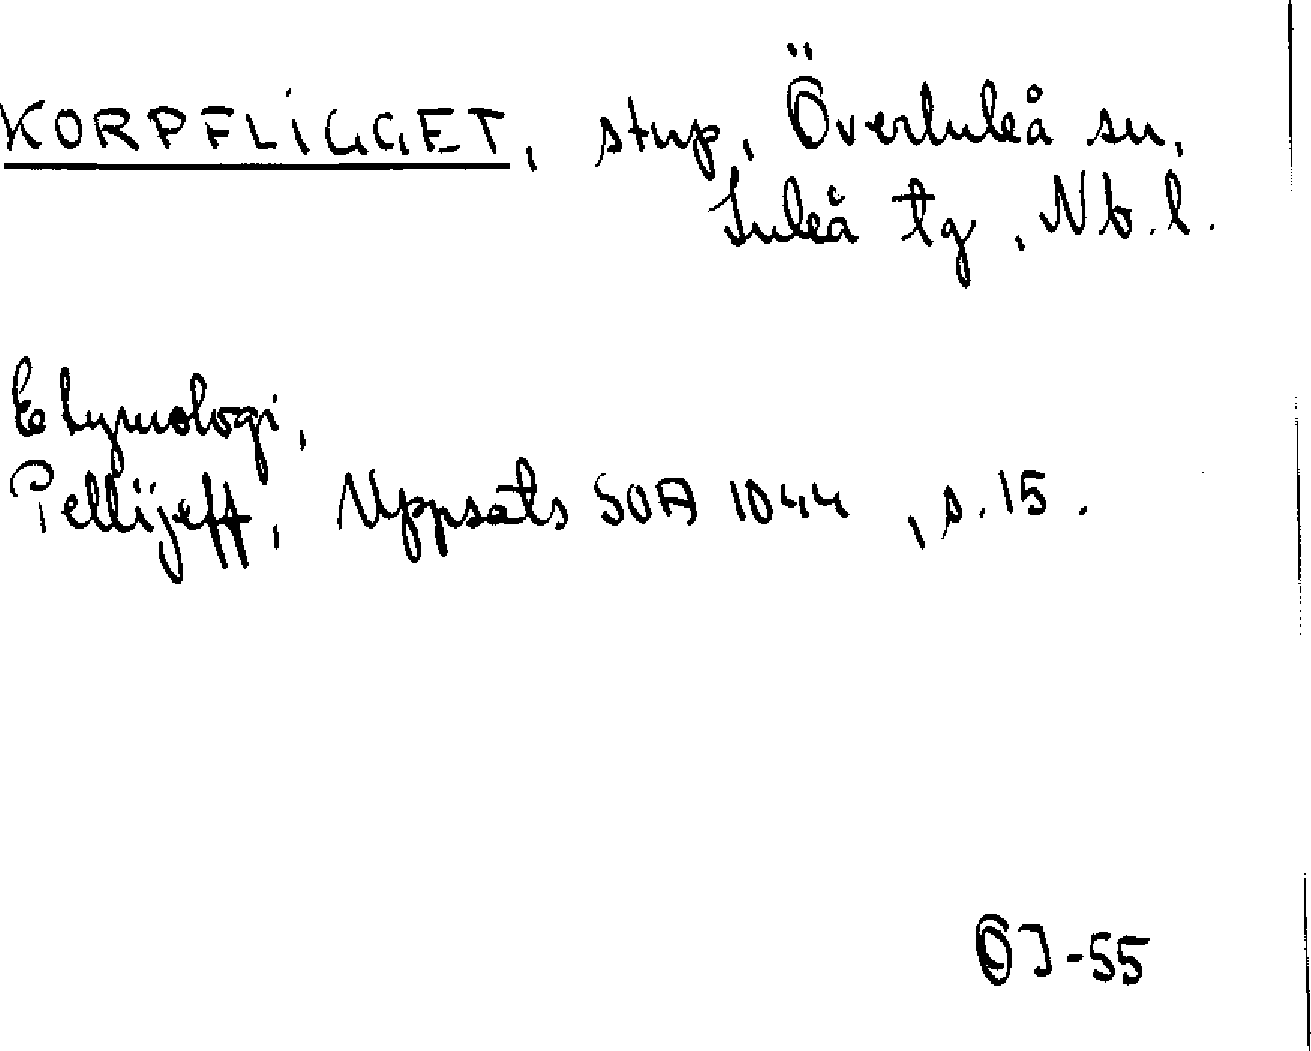 KORPFLIGGET, stup, Överluleå sn,
Luleå tg, Nb. l.
Etymologi,
Pellijeff, Uppsats SOA 1044, s. 15.
OJ-55